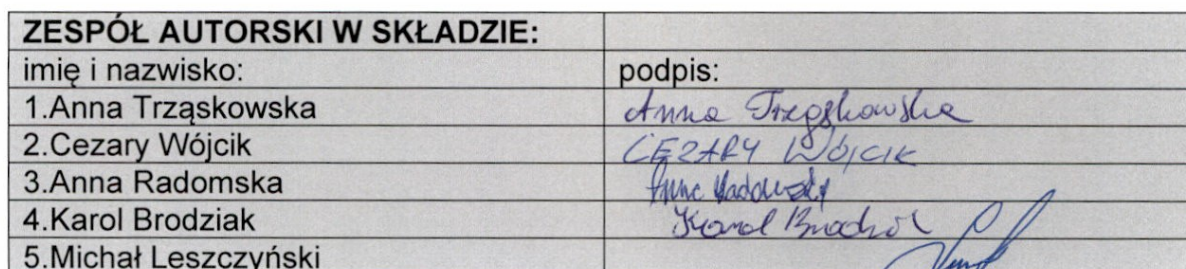 ZESPÓŁ AUTORSKI W SKŁADZIE:
imię i nazwisko: podpis:
1.Anna Trząskowska Anna Trząskowska
2.Cezary Wójcik CEZARY WÓJCIK
3.Anna Radomska Anna Radomska
4.Karol Brodziak Karol
5.Michał Leszczyński